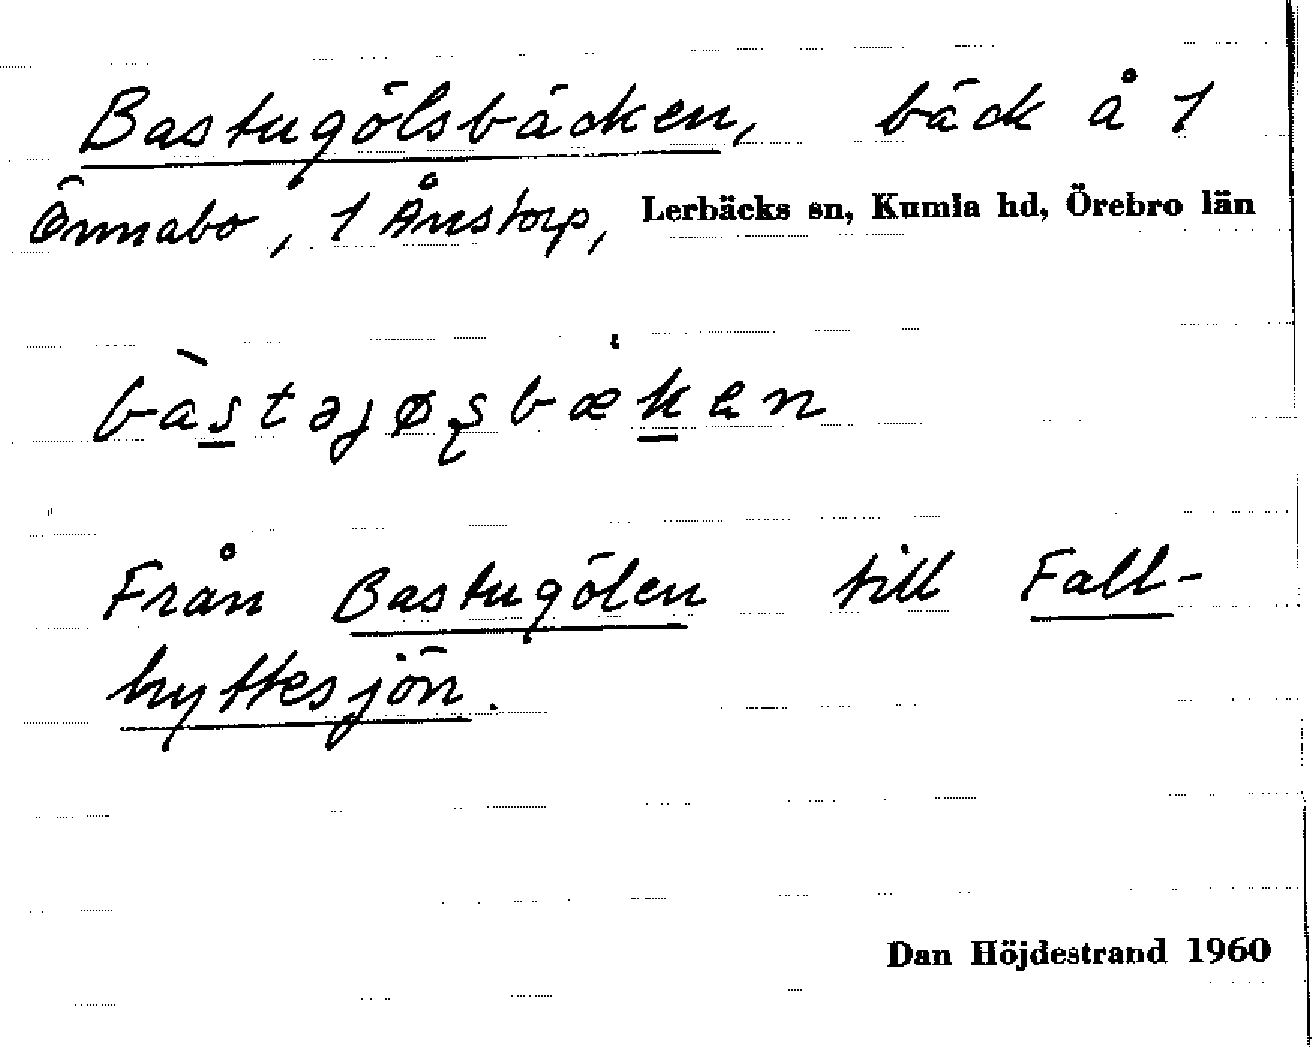 Bastugölsbäcken, bäck å 1
Önnabo, 1 Ånstorp, Lerbäcks sn, Kumla hd, Örebro län
bàstəjøʂbækən
Från Bastugölen till Fall-
hyttesjön.
Dan Höjdestrand 1960